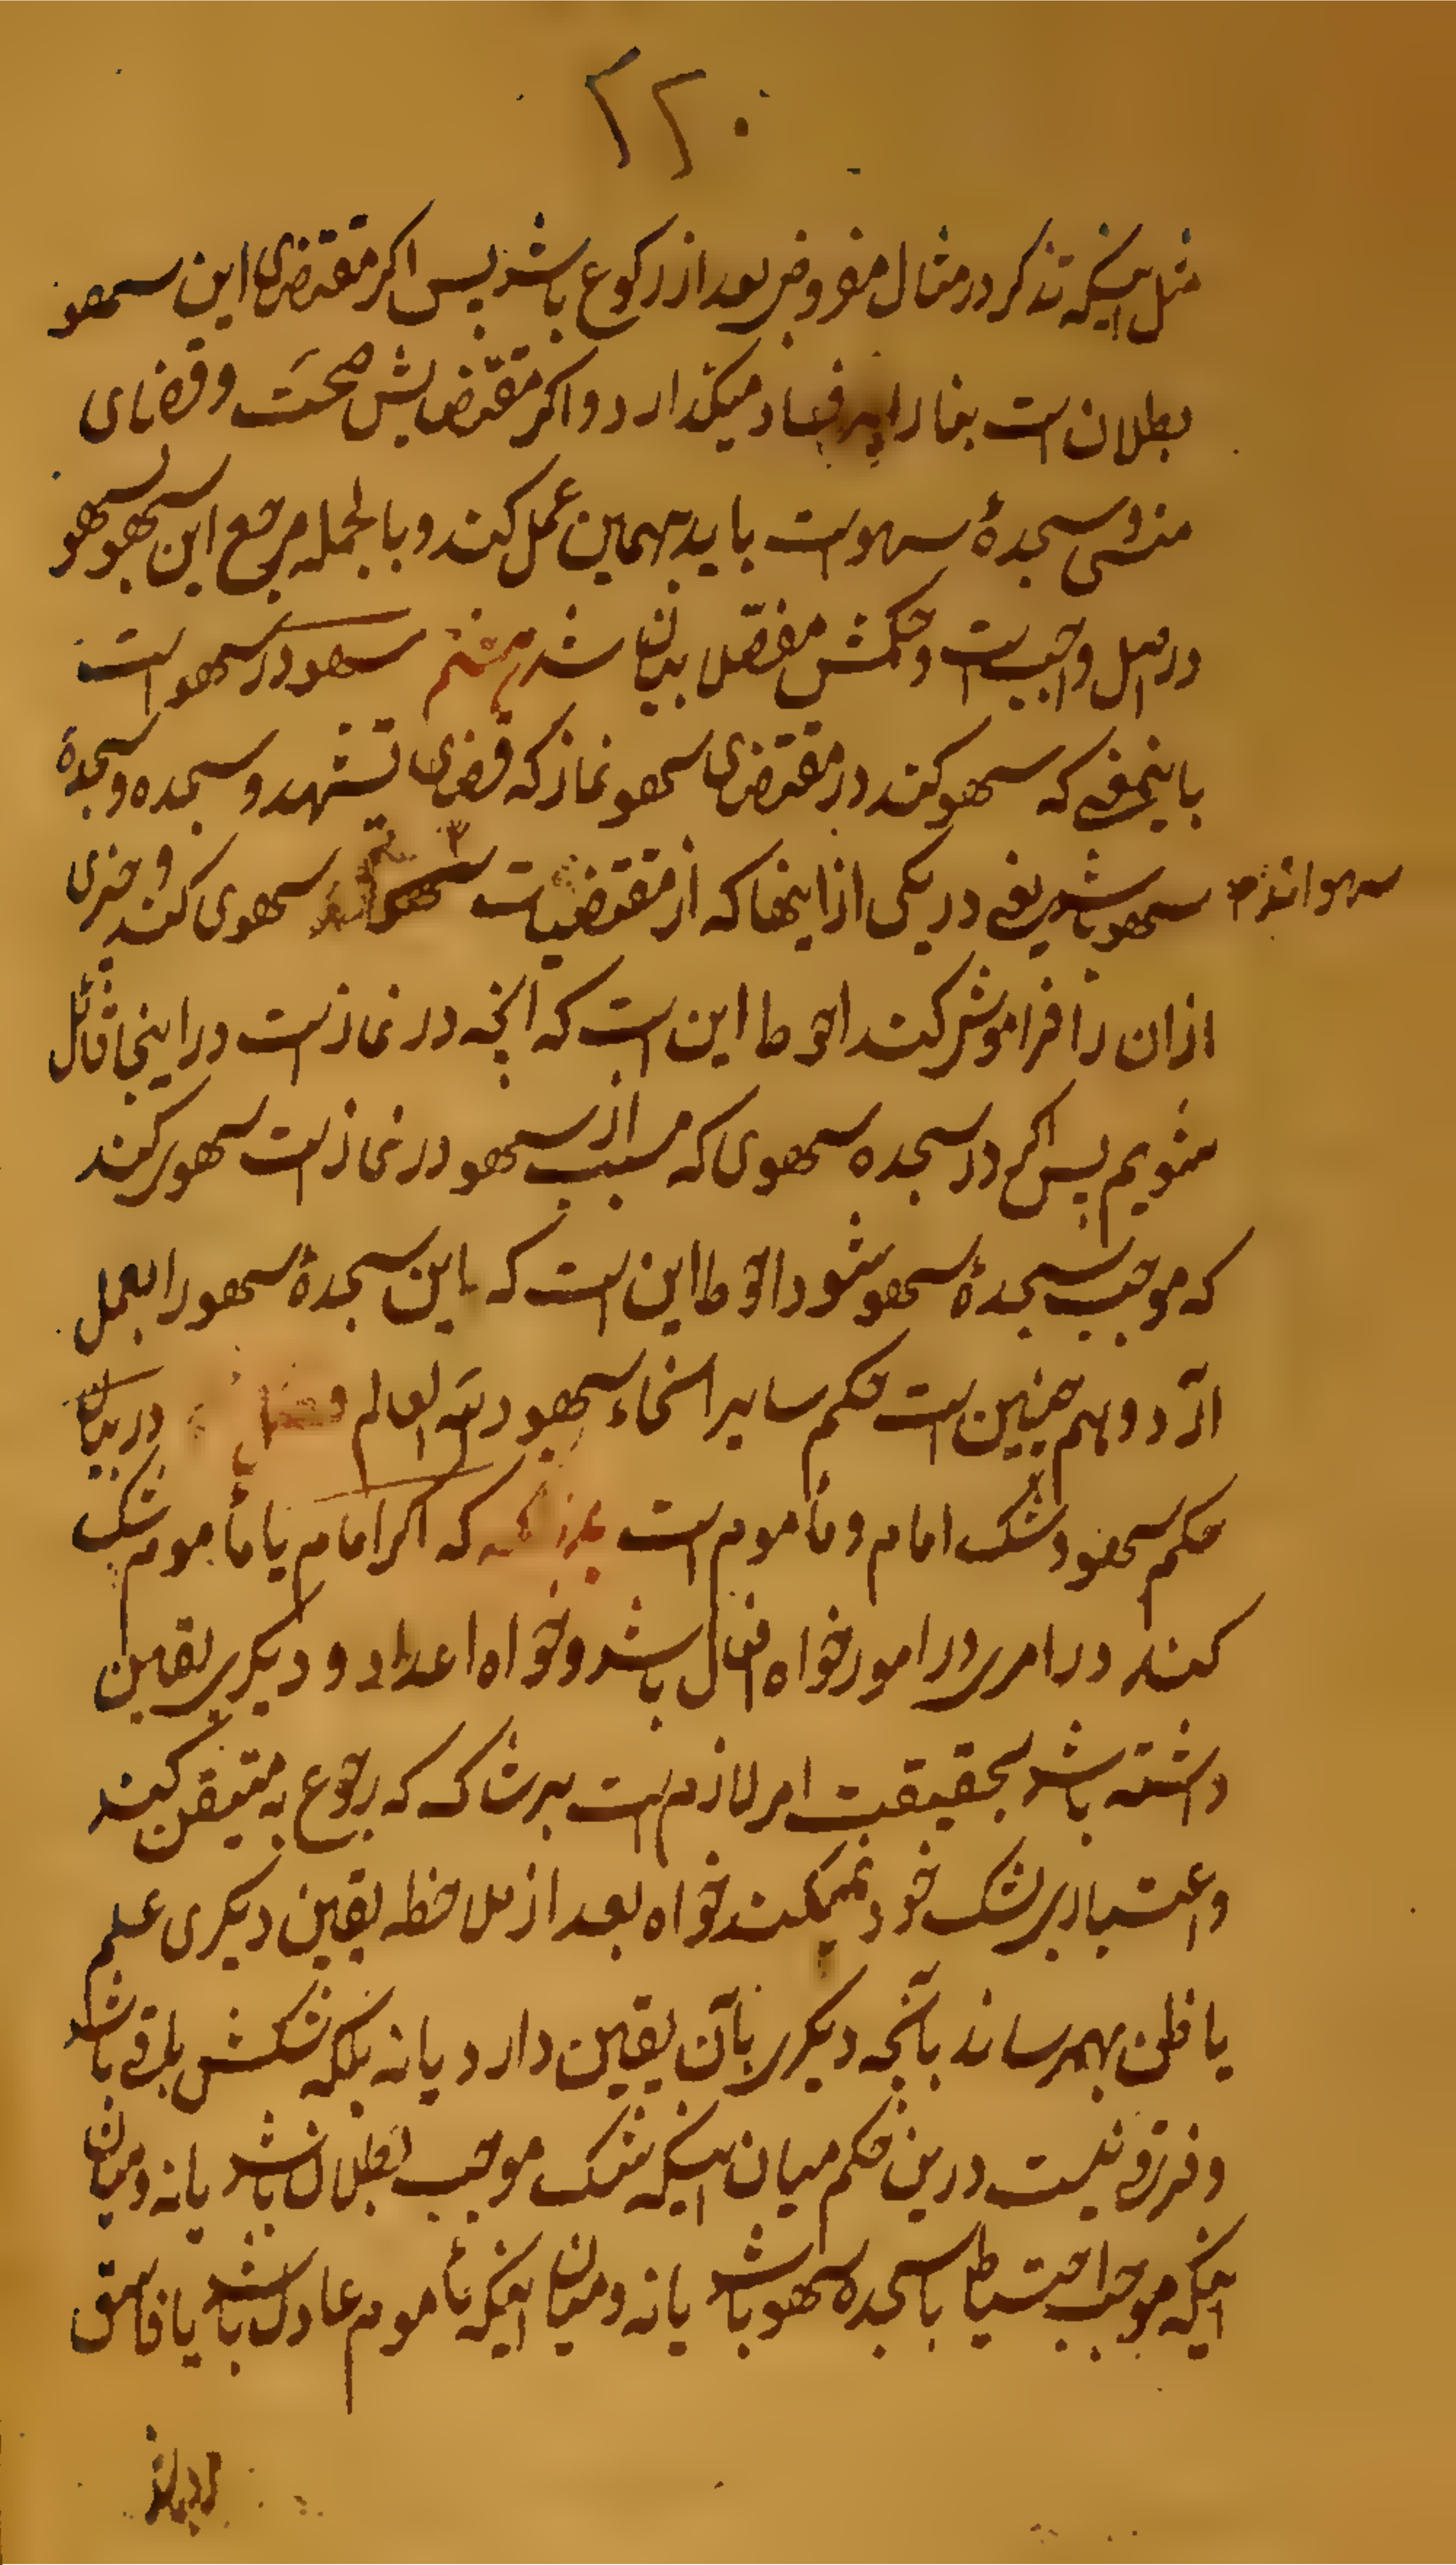 ۲۲۰
مثل اینکه تذکر در مثال مفروض بعد از رکوع باشد پس اکر مقتضی این سهو
بطلان است بنا را بر فساد میکذارد و اکر مقتضایش صحت و قضای
منسی و سجدهٔ سهوست باید بهمین عمل کند و بالجمله مرجع این سهو بسهو
در اصل واجبست و حکمش مفصلا بیان شد هشتم سهو در سهو است
باینمعنی که سهو کند در مقتضی سهو نماز که قضای تشهد و سجده و سجدهٔ
سهو باشد یعنی در یکی از اینها که از مقتضیات سهوی کند و جزئی
سهو اند
از ان را فراموش کند احوط این است که آنچه در نماز است در اینجا قائل
شویم پس اکر در سجده سهوی که مسبب از سهو در نماز است سهو کند
که موجب سجدهٔ سهو شود احوط این است که باین سجدهٔ سهو را بعمل
آرد و همچنین است حکم سایر انحاء سهو و الله العالم در بیان
حکم سهو و شک امام و مأموم است بدانکه که اکر امام یا مأموم شک
کند در امری از امور خواه افعال باشد و خواه اعداد و دیکری یقین
داشته باشد بحقیقت امر لازم است بر شاک که رجوع به متیقن کند
و اعتبار بر شک خود نمیکند خواه بعد از ملاحظه یقین دیکری علم
یا ظن بهمرساند بآنچه دیکری بآن یقین دارد یا نه بلکه شکش باقی باشد
و فرقی نیست درین حکم میان اینکه شک موجب بطلان باشد یا نه و میان
اینکه موجب احتیاط یا سجده سهو باشد یا نه و میان اینکه مأموم عادل باشد یا فاسق